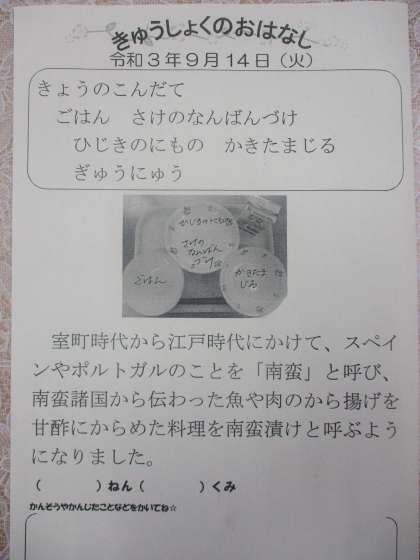 きゅうしょくのおはなし
令和3年9月14日（火）
きょうのこんだて
ごはん　さけのなんばんづけ
ひじきのにもの　かきたまじる
ぎゅうにゅう
ひじきのにもの
さけの
なんばん
づけ
ごはん
かきたま
じる
室町時代から江戸時代にかけて、スペイ
ンやポルトガルのことを「南蛮」と呼び、
南蛮諸国から伝わった魚や肉のから揚げを
甘酢にからめた料理を南蛮漬けと呼ぶよう
になりました。
（　　　　）ねん（　　　　）くみ
かんそうやかんじたことなどをかいてね☆